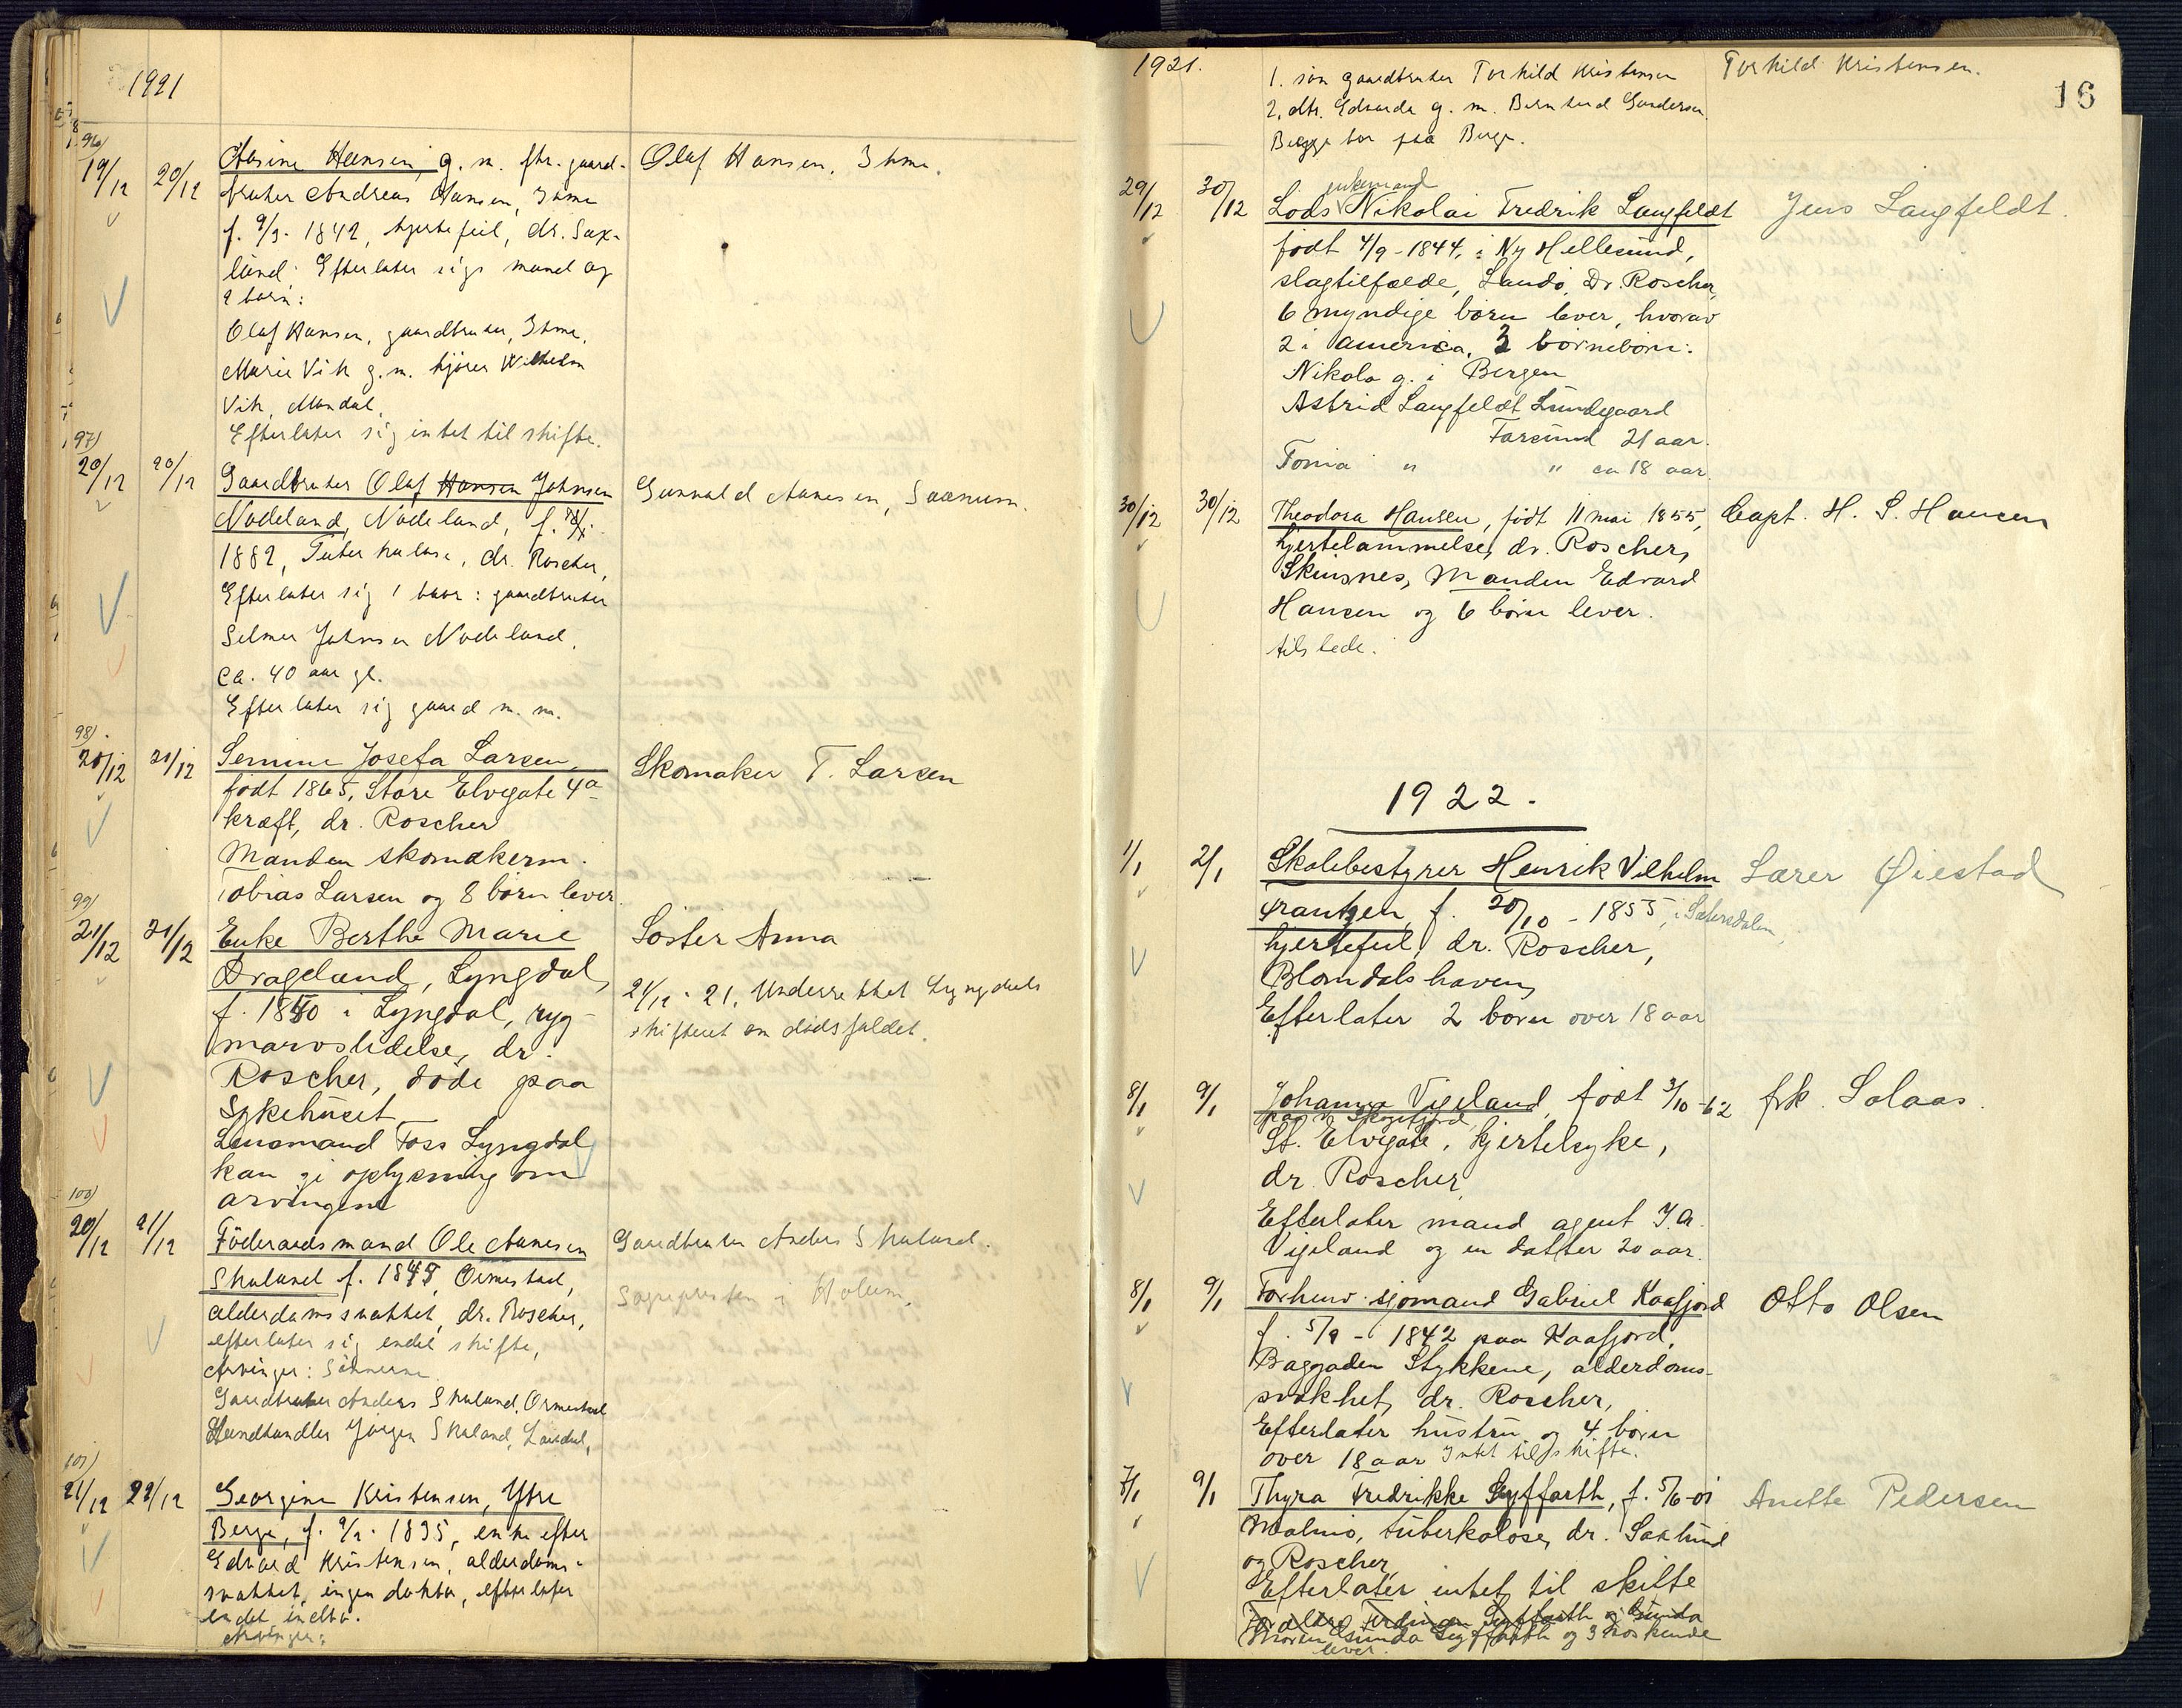 1921
96)
19/12 20/12 Aasine Hansen, g. m. fhr. gaard- Olaf Hansen, Ihme.
bruker Andreas Hansen, Ihme
f. 9/9 - 1842, hjertefeil, dr. Sax-
lund. Efterlater sig mand og
2 barn:
Olaf Hansen, gaardbruker, Ihme.
Marie Vik g. m. kjører Wilhelm
Vik, Mandal.
Efterlater sig intet til skifte.
97)
20/12 20/12 Gaardbruker Olaf Hansen Johnsen Gunvald Aanesen, Saanum.
Nodeland, Nodeland, f.
1882, Tuberkulose, dr. Roscher,
Efterlater sig 1 bror: gaardbruker
Selmer Johnsen Nodeland.
ca. 40 aar gl.
Efterlater sig gaard m. m.
98)
20/12 21/12 Semine Josefa Larsen, Skomaker T. Larsen
født 1865, Store Elvegate 4a
kræft, dr. Roscher
Manden skomakerm.
Tobias Larsen og 8 børn lever.
99)
21/12 21/12 Enke Berthe Marie Søster Anna
Drageland, Lyngdal, 21/12 - 21. Underrettet Lyngdals
f. 1840 i Lyngdal, ryg- skifteret om dødsfaldet.
marvslidelse, dr.
Roscher, døde paa
Sykehuset
Lensmand Foss Lyngdal
kan gi oplysning om
arvingene
100)
20/12 21/12 Føderaadsmand Ole Aanesen Gaardbruker Anders Skuland.
Skuland f. 1845, Ormestad, Sogneprsten i Holum.
alderdomssvakhet, dr. Roscher,
efterlater sig endel skifte,
Arvinger: Sønnerne
Gaardbruker Anders Skuland, Ormestad
Handelsmand Jørgen Skuland, Laudal,
101)
21/12 22/12 Georgine Kristensen, Ytre
Berge, f. 9/2 - 1835, enke efter
Edvard Kristensen, alderdoms-
svakhet, ingen doktor, efterlater
endel indbo.
Arvinger:
1921. 16
1. søn gaardbruker Torkild Kristensen Torkild Kristensen.
2. dtr. Edvarda g. m. Berntsend Gundersen
Begge bor paa Berge.
enkemand
29/12 30/12 Lods Nikolai Fredrik Langfeldt Jens Langfeldt.
født 4/9 - 1844, i Ny Hellesund,
slagtilfælde, Landø, Dr. Roscher,
6 myndige børn lever, hvorav
2 i america. 3 børnebørn:
Nikola g. i Bergen
Astrid Langfeldt Lundegaard
Farsund 21 aar.
Tonia " " ca 18 aar
30/12 30/12 Theodora Hansen, født 11 mai 1855, Capt. H. S. Hansen
hjertelammelse, dr. Roscher,
Skinsnes, Manden Edvard
Hansen og 6 børn lever.
tilstede.
1922.
1/1 2/1 Skolebestyrer Henrik Vilhelm Lærer Øiestad
Frantzen, f. 20/10 - 1855, i Sætersdalen,
hjertefeil, dr. Roscher,
Blomdalshaven,
Efterlater 2 børn over 18 aar
8/1 9/1 Johanna Vigeland, født 3/10 - 62 frk. Solaas.
paa
St. Elvegate, hjertesyke,
dr Roscher,
Efterlater mand agent J. A.
Vigeland og en datter 20 aar.
8/1 9/1 Forhenv. sjømand Gabriel Kaafjord Otto Olsen
f. 5/9 - 1842 paa Kaafjord,
Baggaden Stykkene, alderdoms-
svakhet, dr. Roscher,
Efterlater hustru og 4 børn
over 18 aar Intet til skifte.
7/1 9/1 Thyra Fredrikke Seyffarth, f. 5/6 - 01 Anette Pedersen
Malmø, tuberkolose, dr. Saxlund
og Roscher,
Efterlater intet til skifte
Foreldre Seyffarth og Gunda
Moren Gunda Seyffarth og 3 søskende
lever.